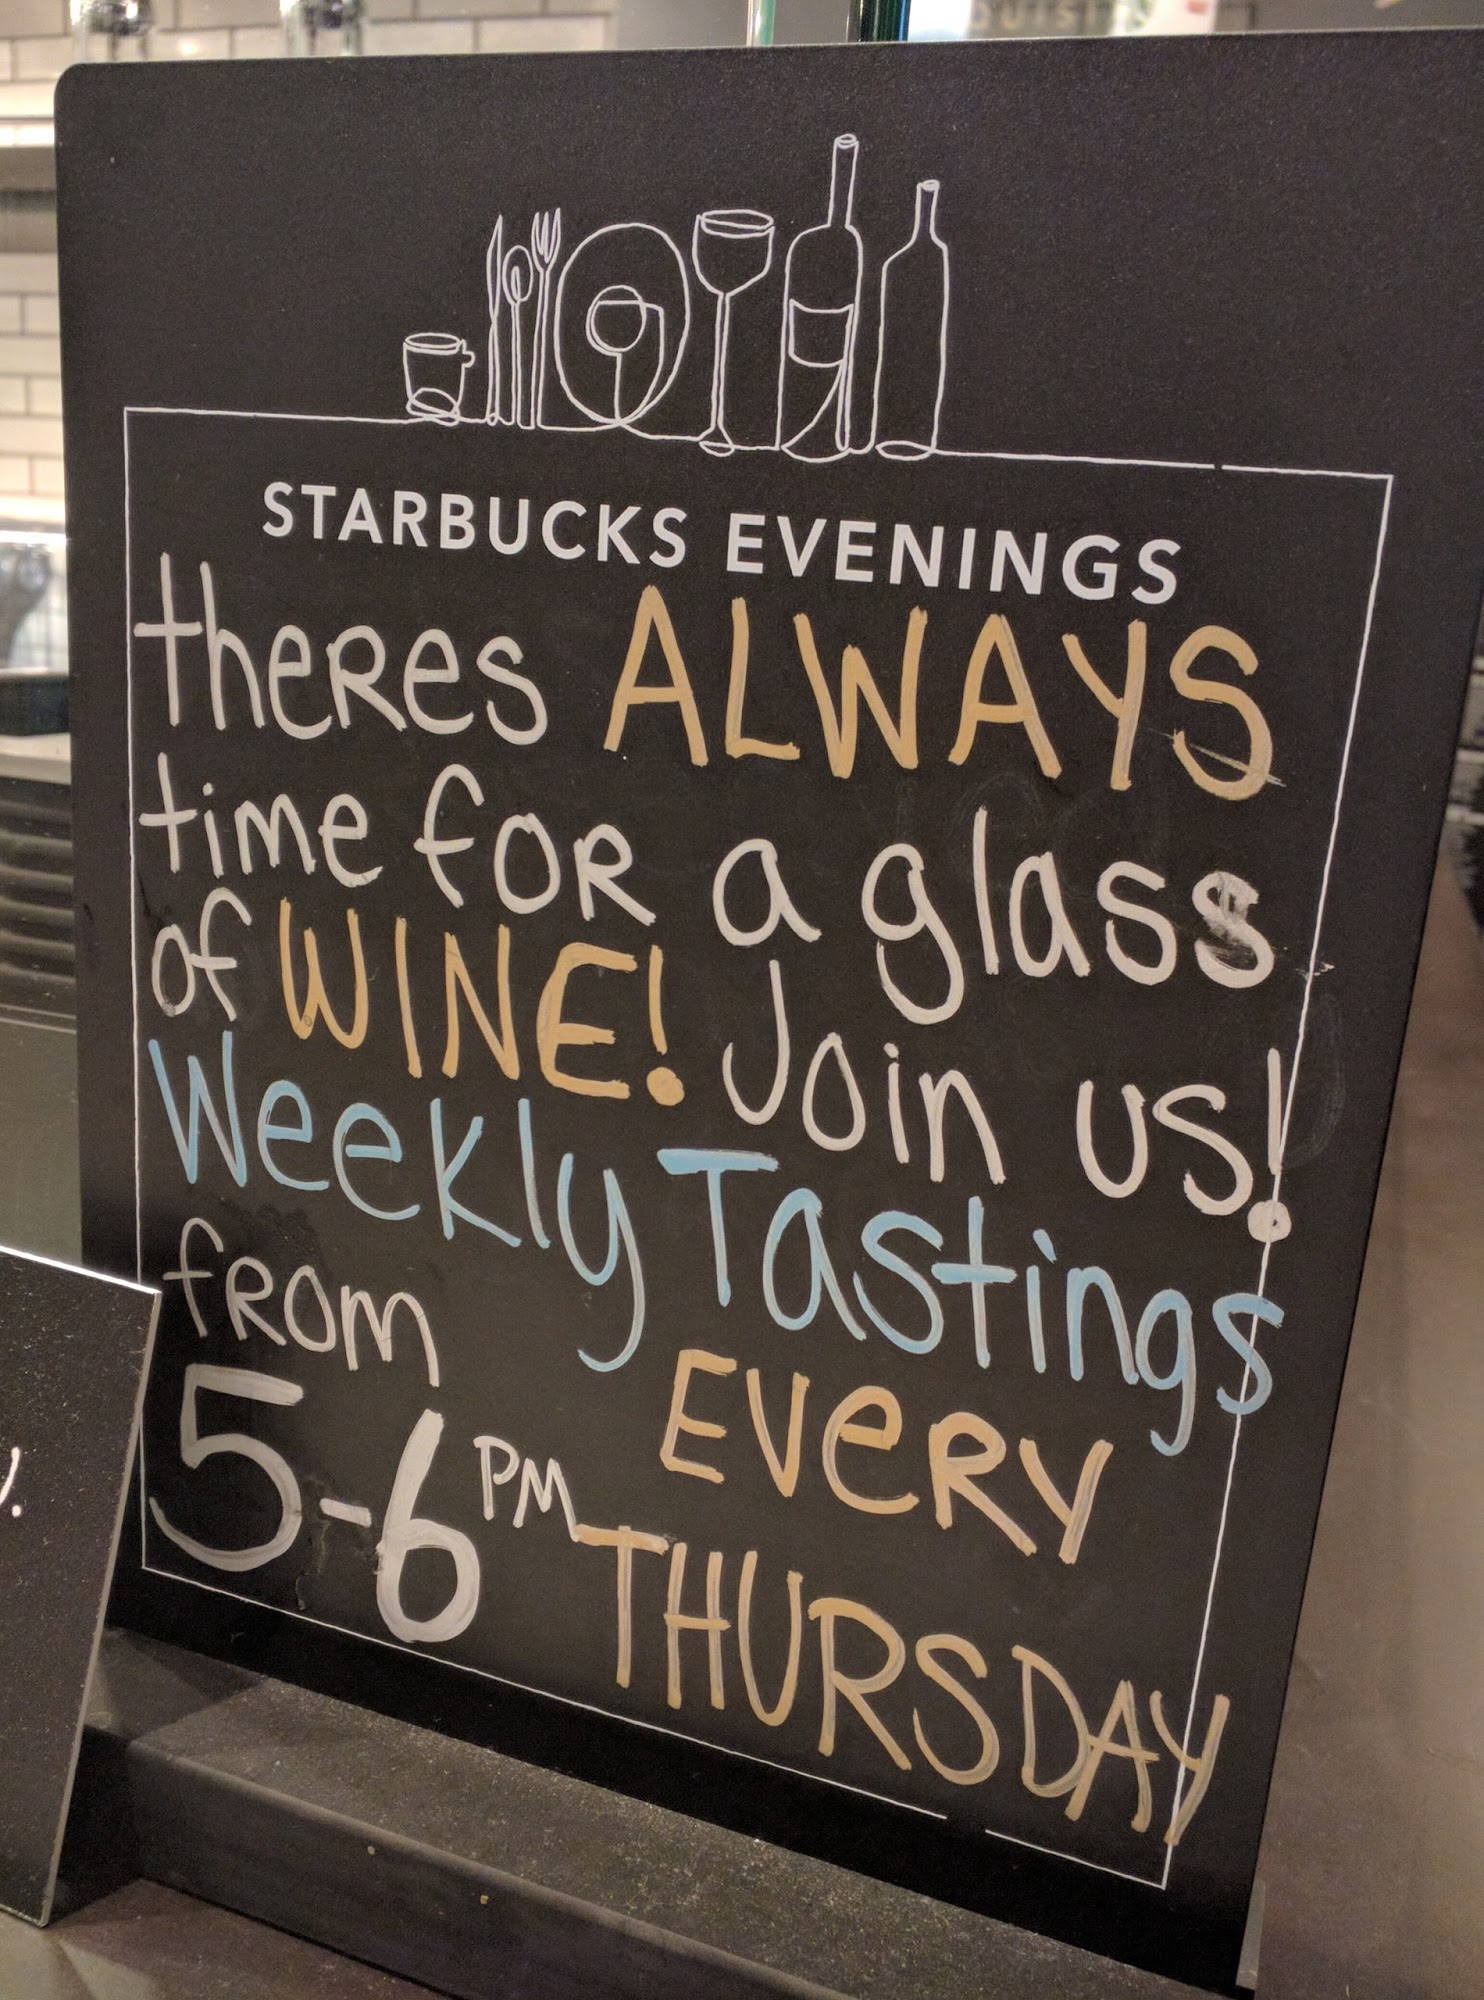 STARBUCKS EVENINGS
theRes ALWAYS
time foR a glass
of WINE! Join us!
Weekly Tastings
fRom EVeRY
5-6 PM THURSDAY